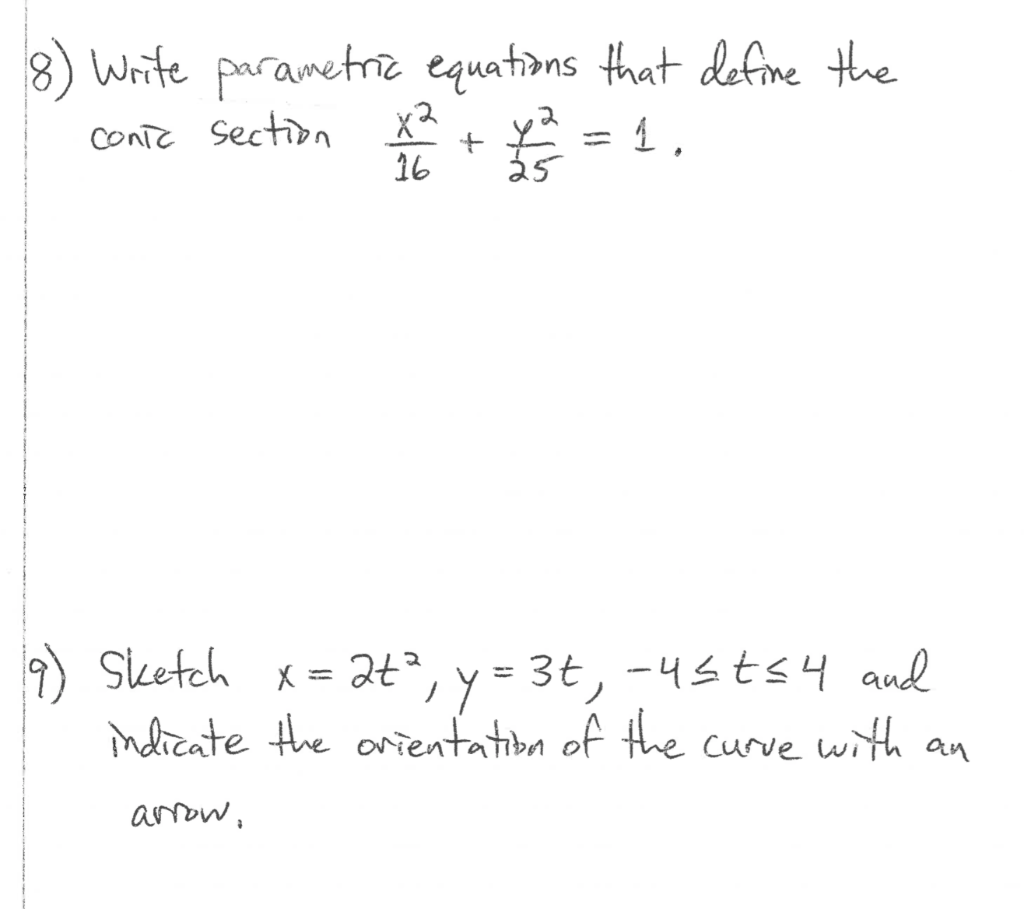 8) Write parametric equations that define the
conic section x²/16 + y²/25 = 1.
9) Sketch x = 2t², y = 3t, -4 ≤ t ≤ 4 and
indicate the orientation of the curve with an
arrow.